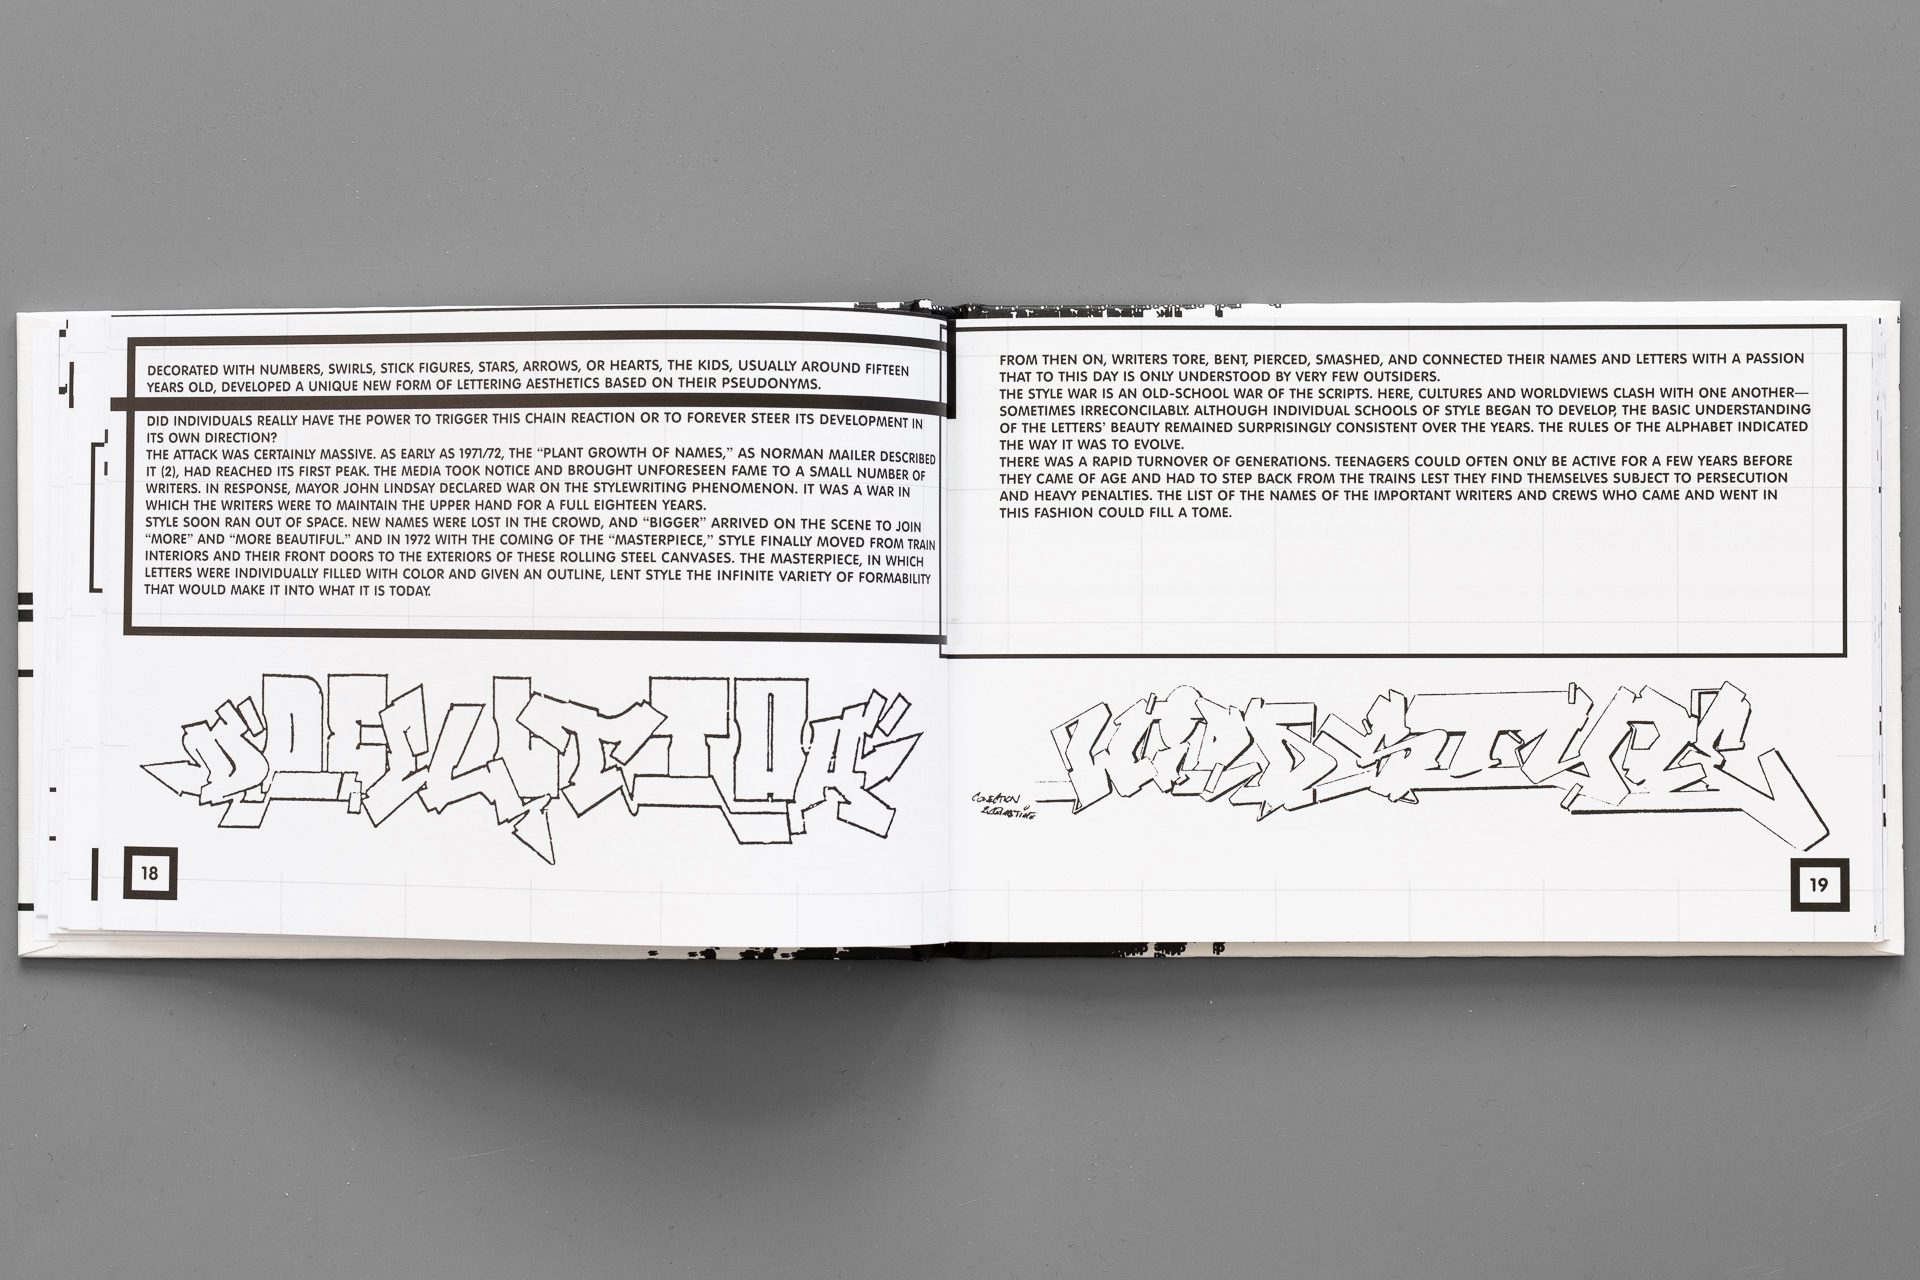 DECORATED WITH NUMBERS, SWIRLS, STICK FIGURES, STARS, ARROWS, OR HEARTS, THE KIDS, USUALLY AROUND FIFTEEN
YEARS OLD, DEVELOPED A UNIQUE NEW FORM OF LETTERING AESTHETICS BASED ON THEIR PSEUDONYMS.
DID INDIVIDUALS REALLY HAVE THE POWER TO TRIGGER THIS CHAIN REACTION OR TO FOREVER STEER ITS DEVELOPMENT IN
ITS OWN DIRECTION?
THE ATTACK WAS CERTAINLY MASSIVE. AS EARLY AS 1971/72, THE “PLANT GROWTH OF NAMES,” AS NORMAN MAILER DESCRIBED
IT (2), HAD REACHED ITS FIRST PEAK. THE MEDIA TOOK NOTICE AND BROUGHT UNFORESEEN FAME TO A SMALL NUMBER OF
WRITERS. IN RESPONSE, MAYOR JOHN LINDSAY DECLARED WAR ON THE STYLEWRITING PHENOMENON. IT WAS A WAR IN
WHICH THE WRITERS WERE TO MAINTAIN THE UPPER HAND FOR A FULL EIGHTEEN YEARS.
STYLE SOON RAN OUT OF SPACE. NEW NAMES WERE LOST IN THE CROWD, AND “BIGGER” ARRIVED ON THE SCENE TO JOIN
“MORE” AND “MORE BEAUTIFUL.” AND IN 1972 WITH THE COMING OF THE “MASTERPIECE,” STYLE FINALLY MOVED FROM TRAIN
INTERIORS AND THEIR FRONT DOORS TO THE EXTERIORS OF THESE ROLLING STEEL CANVASES. THE MASTERPIECE, IN WHICH
LETTERS WERE INDIVIDUALLY FILLED WITH COLOR AND GIVEN AN OUTLINE, LENT STYLE THE INFINITE VARIETY OF FORMABILITY
THAT WOULD MAKE IT INTO WHAT IT IS TODAY.
18
FROM THEN ON, WRITERS TORE, BENT, PIERCED, SMASHED, AND CONNECTED THEIR NAMES AND LETTERS WITH A PASSION
THAT TO THIS DAY IS ONLY UNDERSTOOD BY VERY FEW OUTSIDERS.
THE STYLE WAR IS AN OLD-SCHOOL WAR OF THE SCRIPTS. HERE, CULTURES AND WORLDVIEWS CLASH WITH ONE ANOTHER—
SOMETIMES IRRECONCILABLY. ALTHOUGH INDIVIDUAL SCHOOLS OF STYLE BEGAN TO DEVELOP, THE BASIC UNDERSTANDING
OF THE LETTERS’ BEAUTY REMAINED SURPRISINGLY CONSISTENT OVER THE YEARS. THE RULES OF THE ALPHABET INDICATED
THE WAY IT WAS TO EVOLVE.
THERE WAS A RAPID TURNOVER OF GENERATIONS. TEENAGERS COULD OFTEN ONLY BE ACTIVE FOR A FEW YEARS BEFORE
THEY CAME OF AGE AND HAD TO STEP BACK FROM THE TRAINS LEST THEY FIND THEMSELVES SUBJECT TO PERSECUTION
AND HEAVY PENALTIES. THE LIST OF THE NAMES OF THE IMPORTANT WRITERS AND CREWS WHO CAME AND WENT IN
THIS FASHION COULD FILL A TOME.
19